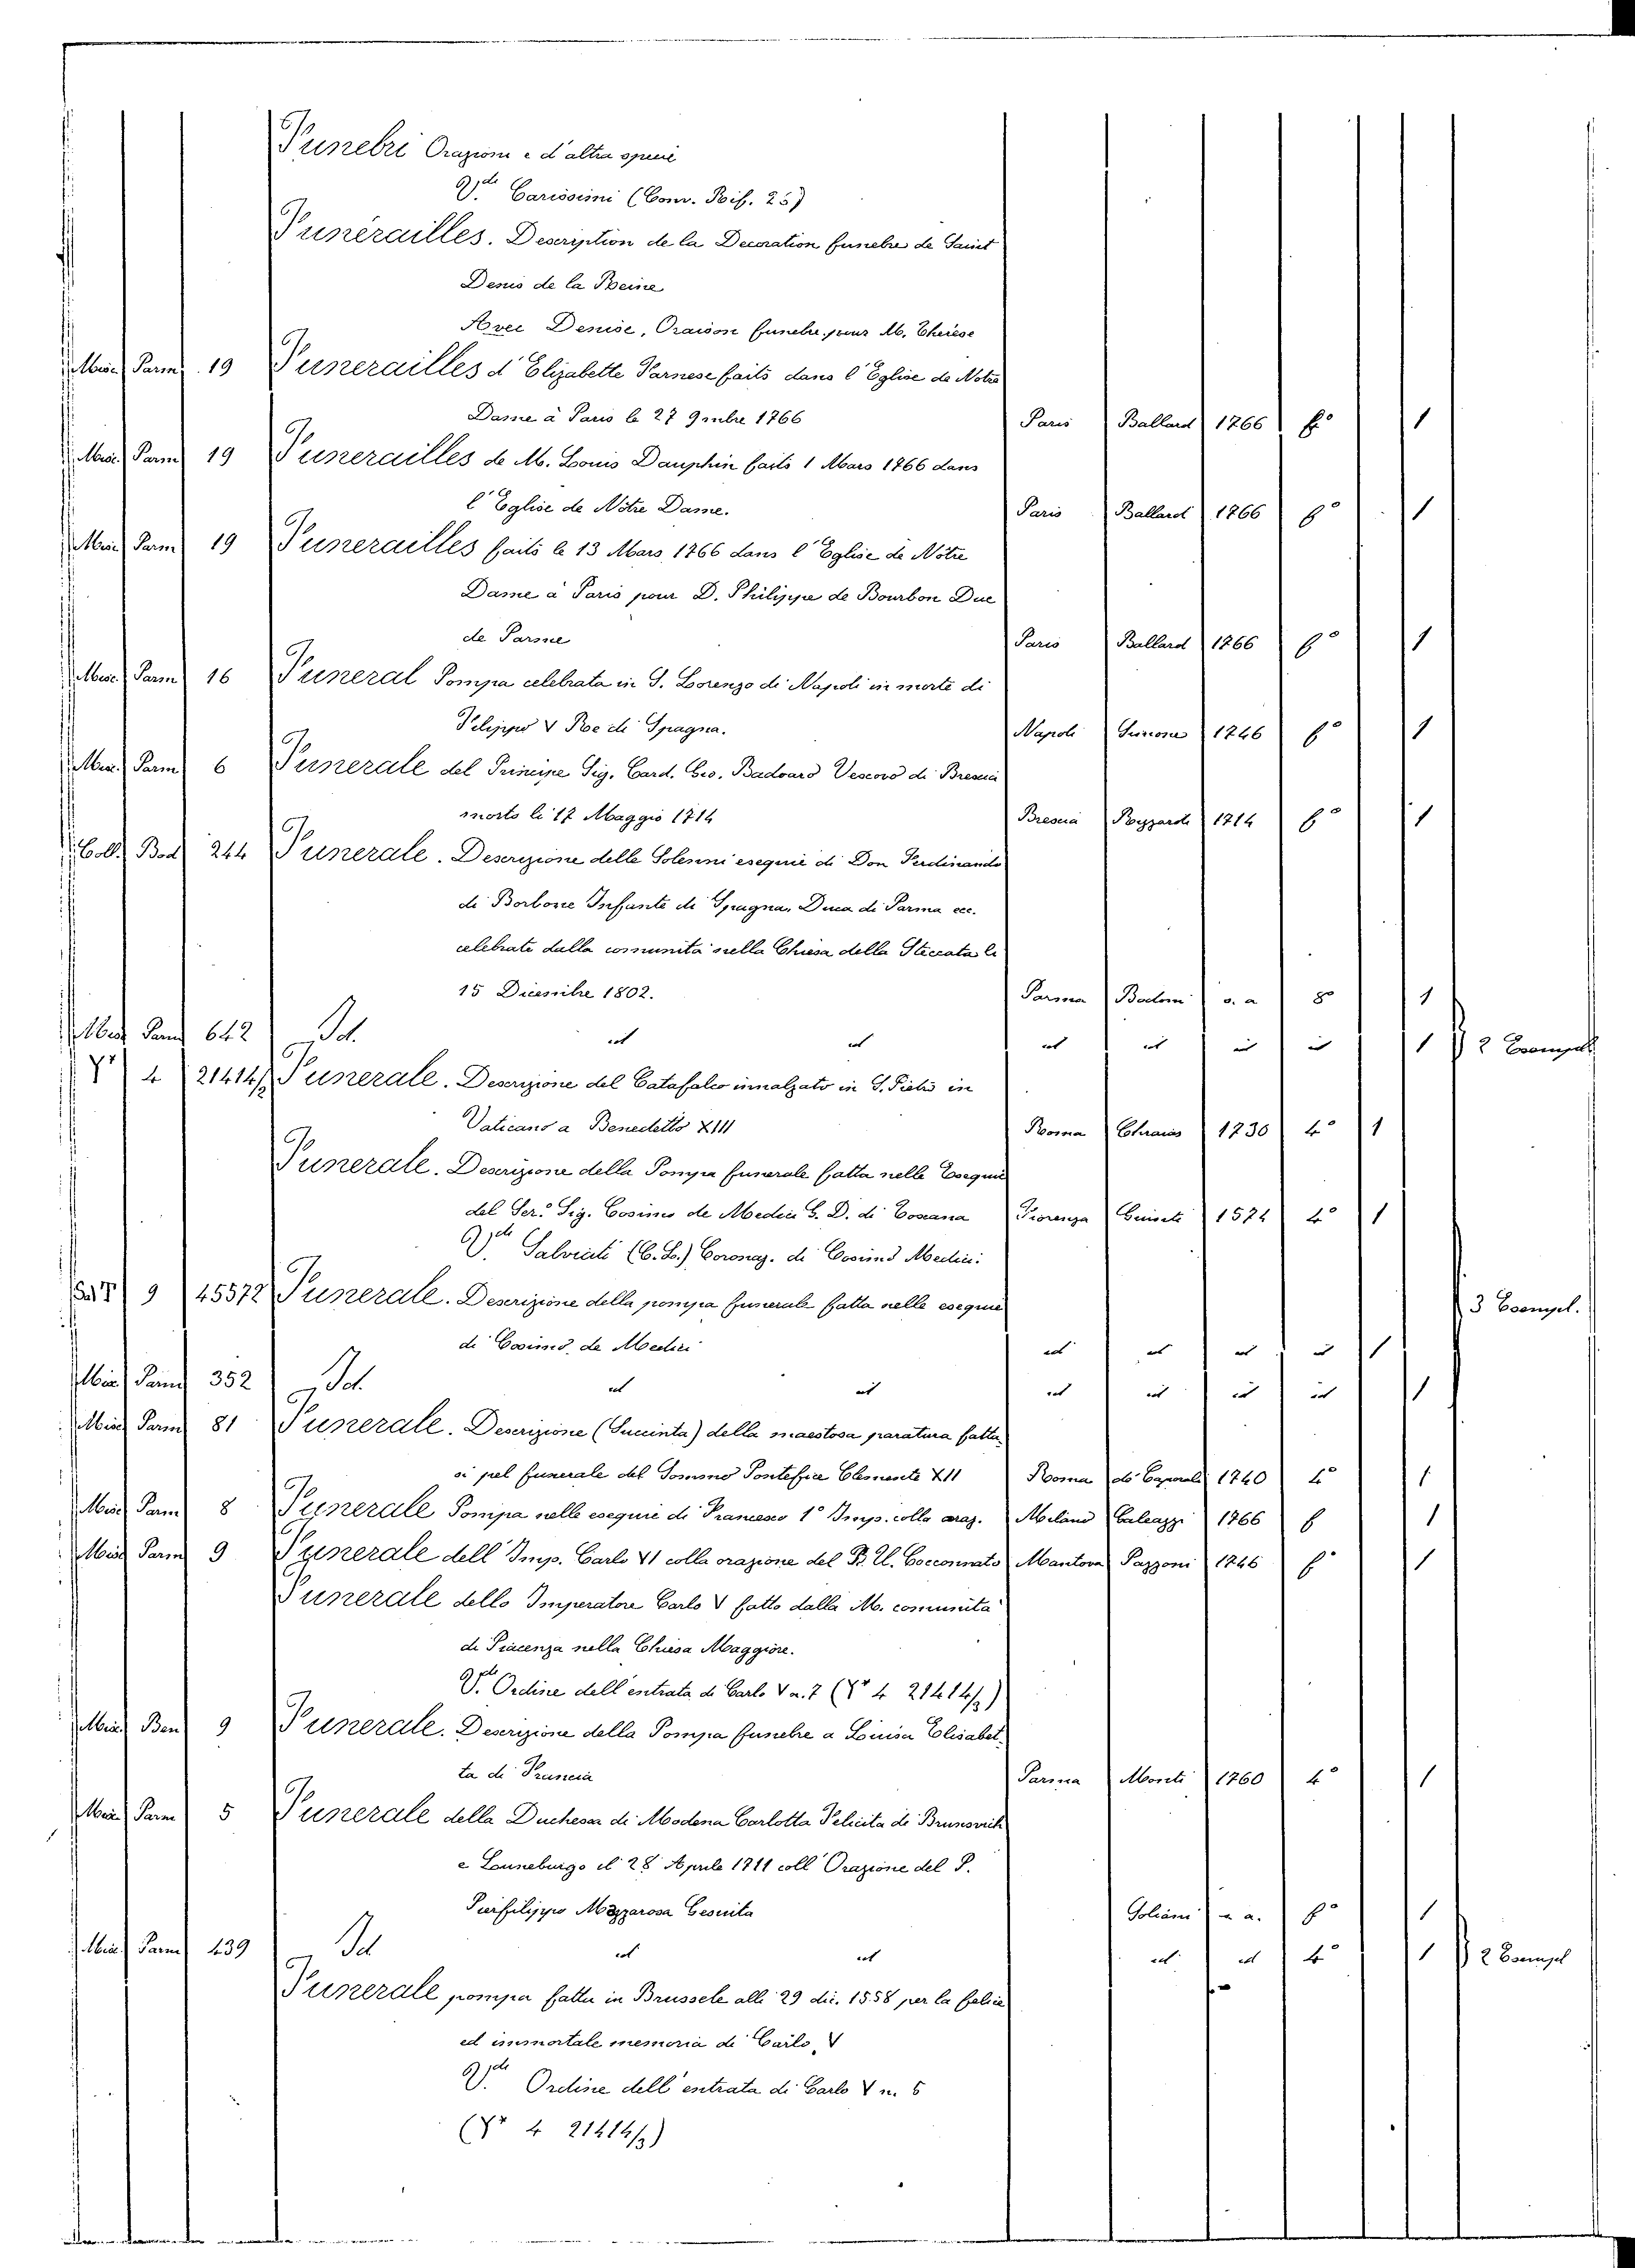 Funebri Orazioni e d'altra specie
V.de Carissimi (Conv. Poif. 25)
Funérailles. Description de la Decoration funebre de Saint
Denis de la Reine
Avec Denise, Oraison funebre pour M. Therese
Misc. Parm. 19 Funerailles d'Elizabette Farnese faits dans l'Eglise de Notre
Dame à Paris le 27 9mbre 1766 Paris Ballard 1766 f° 1
Misc. Parm. 19 Funerailles de M. Louis Dauphin faits 1 Mars 1766 dans
l'Eglise de Nôtre Dame. Paris Ballard 1766 f° 1
Misc. Parm. 19 Funerailles faits le 13 Mars 1766 dans l'Eglise de Nôtre
Dame à Paris pour D. Philippe de Bourbon Duc
de Parme Paris Ballard 1766 f° 1
Misc. Parm. 16 Funeral Pompa celebrata in S. Lorenzo di Napoli in morte di
Felippo V Re di Spagna. Napoli 1746 f° 1
Misc. Parm. 6 Funerale del Principe Sig. Card. Gio. Badoaro Vescovo di Brescia
morto li 17 Maggio 1714 Brescia Rizzardi 1714 f° 1
Coll. Bod. 244 Funerale. Descrizione delle Solenni esequie di Don Ferdinando
di Borbone Infante di Spagna, Duca di Parma ecc.
celebrate dalla comunità nella Chiesa della Steccata li
15 Dicembre 1802. Parma Bodoni s. a 8° 1
Misc. Parm. 642 Id. id id id id id id 1 2 Esempl.
4 21414/2 Funerale. Descrizione del Catafalco innalzato in S. Pietro in
Vaticano a Benedetto XIII Roma Chracas 1730 4° 1
Funerale. Descrizione della Pompa funerale fatta nelle Esequie
del Ser.° Sig. Cosimo de Medici G. D. di Toscana Fiorenza Giunti 1574 4° 1
V.de Salviati (C. L.) Coronaz. di Cosimo Medici.
9 45572 Funerale. Descrizione della pompa funerale fatta nelle esequie 3 Esempl.
di Cosimo de Medici id id id id 1
Misc. Parm. 352 Id. id id id id id id 1
Misc. Parm. 81 Funerale. Descrizione (Succinta) della maestosa paratura fatta
si pel funerale del Sommo Pontefice Clemente XII Roma de Caporali 1740 4° 1
Misc. Parm. 8 Funerale Pompa nelle esequie di Francesco 1° Imp. colla oraz. Milano Galeazzi 1766 f 1
Misc. Parm. 9 Funerale dell'Imp. Carlo VI colla orazione del P. U. Cocconato Mantova Pazzoni 1746 f° 1
Funerale dello Imperatore Carlo V fatto dalla M. comunità
di Piacenza nella Chiesa Maggiore.
V.de Ordine dell'entrata di Carlo V n. 7 (Yr 4 21414/2)
Misc. Ben. 9 Funerale. Descrizione della Pompa funebre a Louisa Elisabet-
ta di Francia Parma Monti 1760 4° 1
Misc. Parm. 5 Funerale della Duchessa di Modena Carlotta Felicita di Brunsvich
e Louneburgo il 28 Aprile 1711 coll'Orazione del P.
Pierfilippo Mazzarosa Gesuita Soliani s. a. f° 1
Misc. Parm. 439 Id id id id id 4° 1 2 Esempl
Funerale pompa fatta in Brussele alli 29 dic. 1558 per la felice
ed immortale memoria di Carlo V
V.de Ordine dell'entrata di Carlo V n. 5
(Yr 4 21414/3)